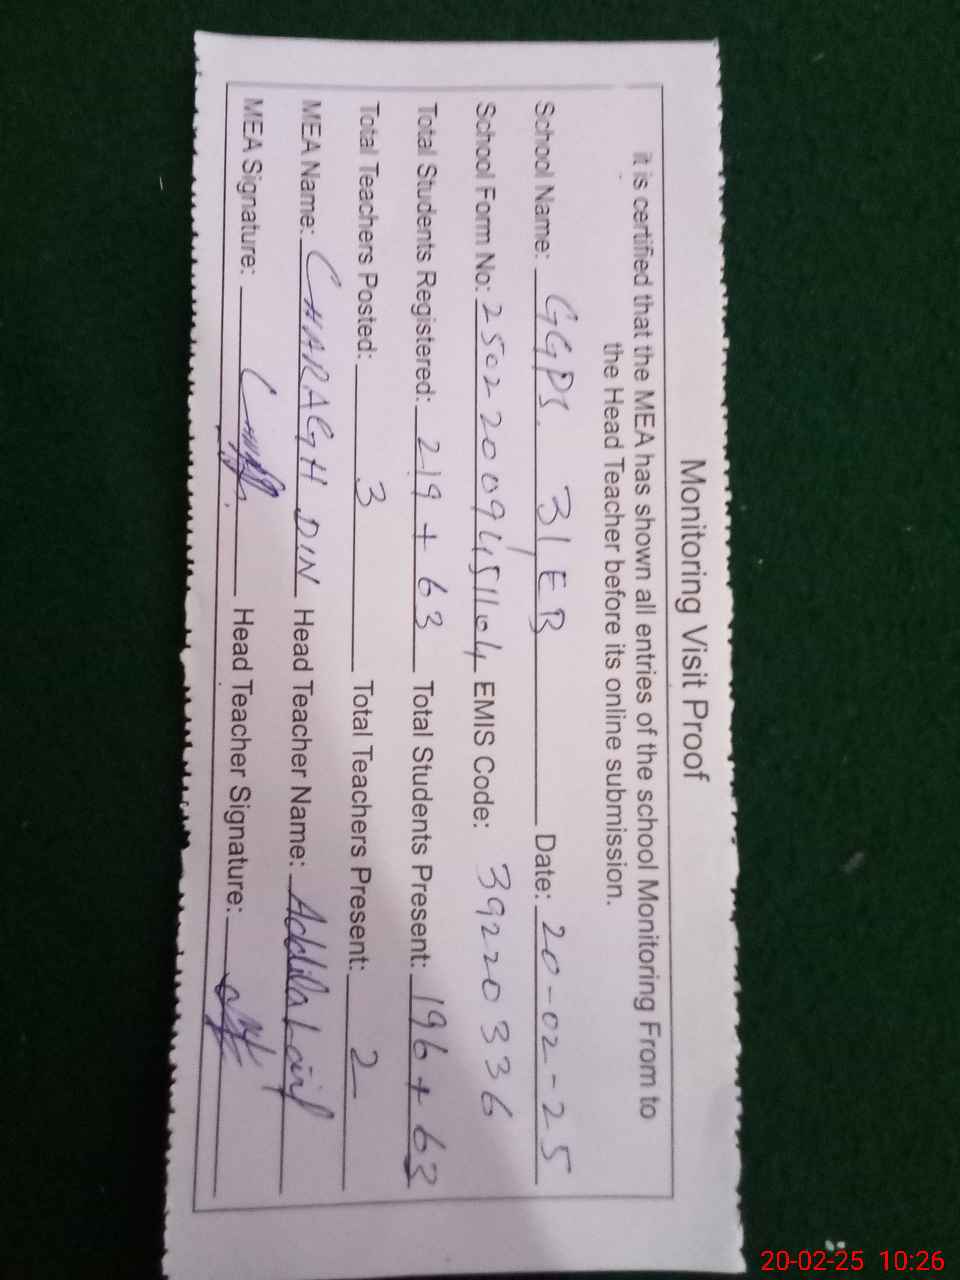 Monitoring Visit Proof
it is certified that the MEA has shown all entries of the school Monitoring From to
the Head Teacher before its online submission.
School Name: GGPS. 31/EB Date: 20-02-25
School Form No: 25022009451104 EMIS Code: 39220336
Total Students Registered: 219 + 63 Total Students Present: 196 + 63
Total Teachers Posted: 3 Total Teachers Present: 2
MEA Name: CHARAGH DIN Head Teacher Name:
MEA Signature: Head Teacher Signature:
20-02-25 10:26